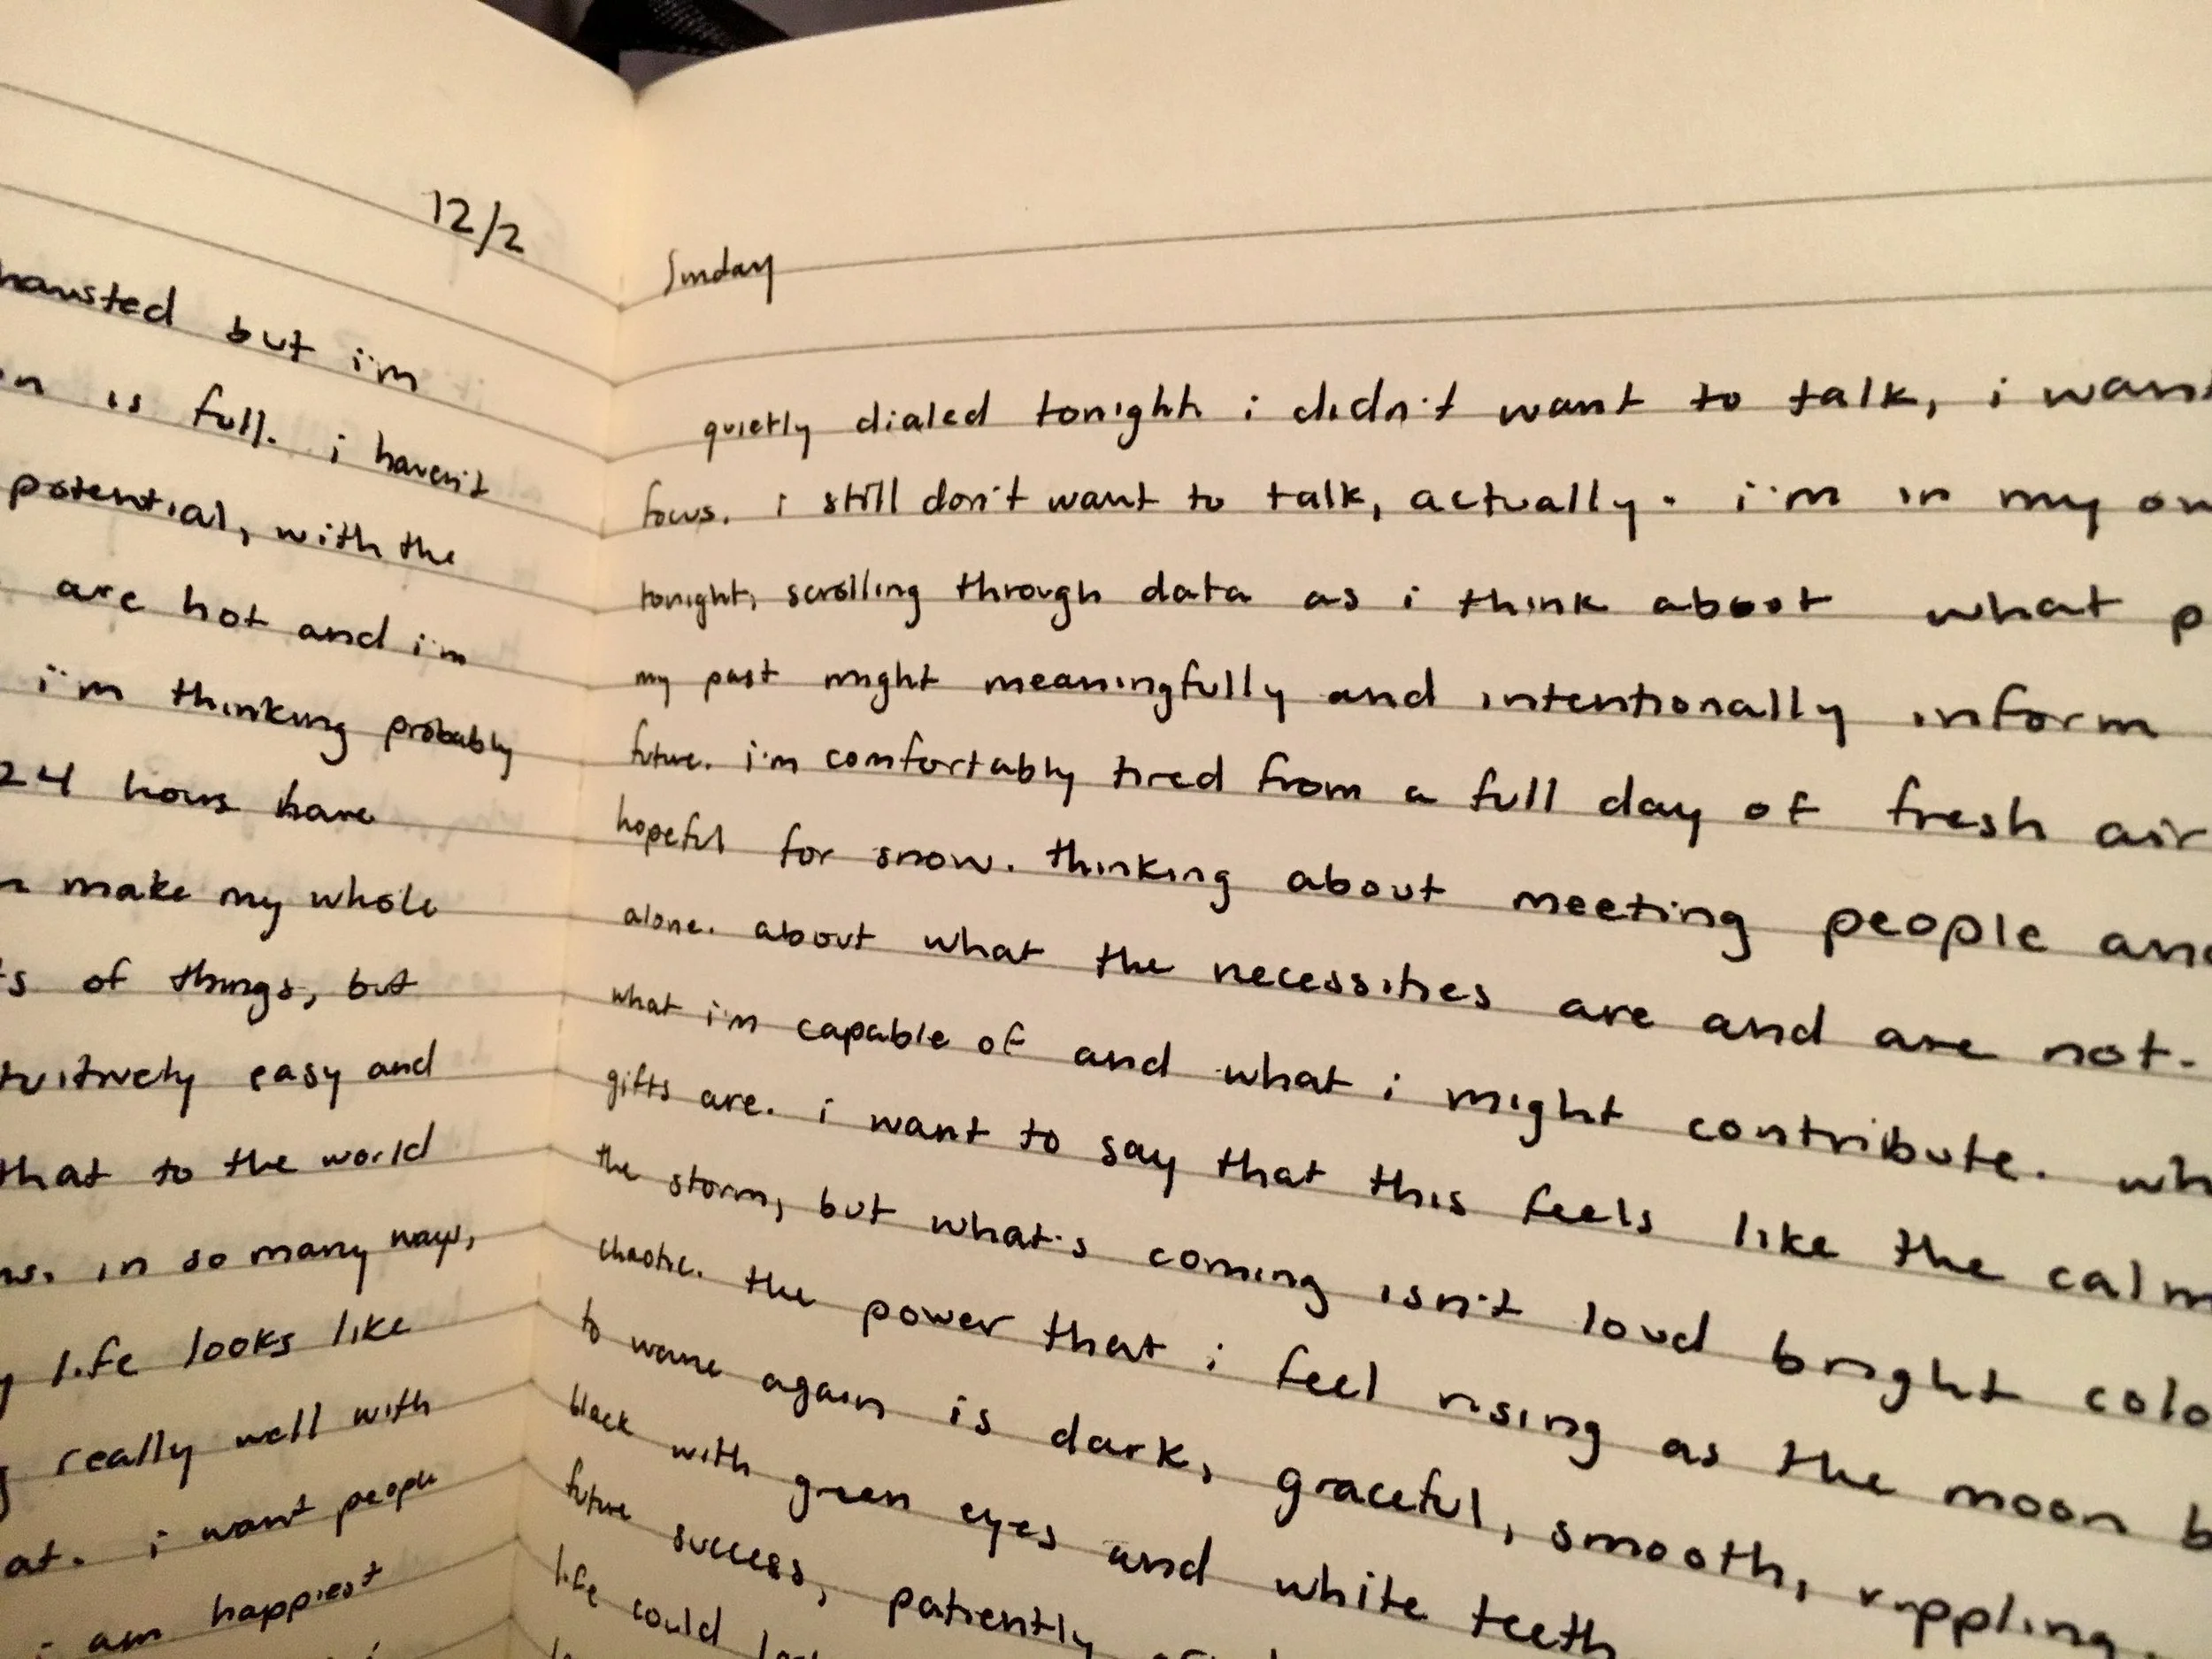 12/2
but i'm
is full. i haven't
potential, with the
are hot and i'm
i'm thinking probably
24 hours have
make my whole
of things, but
easy and
that to the world
in so many ways,
life looks like
really well with
i want people
i am happiest
Sunday
quietly dialed tonight i didn't want to talk, i
focus. i still don't want to talk, actually. i'm in my
tonight, scrolling through data as i think about what
my past might meaningfully and intentionally inform
future. i'm comfortably tired from a full day of fresh air
hopeful for snow. thinking about meeting people
alone. about what the necessities are and are not.
what i'm capable of and what i might contribute.
gifts are. i want to say that this feels like the
the storm, but what's coming isn't loud bright
chaotic. the power that i feel rising as the moon
to wane again is dark, graceful, smooth, rippling.
black with green eyes and white teeth
future success, patiently
life could